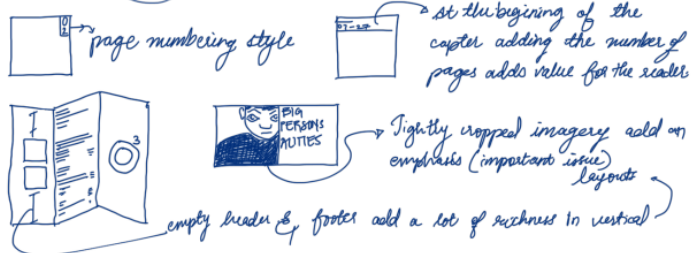 0
2
page numbering style
07-27
At the begining of the
capter adding the number of
pages adds value for the reader
BIG
PERSONS
ALITIES
Tightly cropped imagery add an
emphasis (important issue)
layouts
3
empty header & footer add a lot of richness in vertical